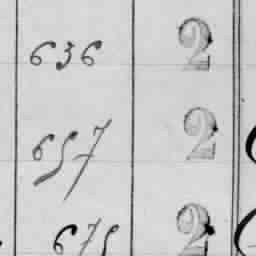 636 2
657 2
675 2